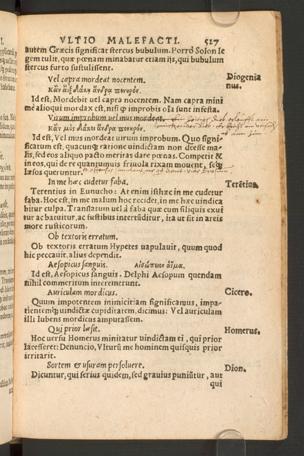 VLTIO MALEFACTI. 527
autem Græcis significat stercus bubulum. Porrò Solon le
gem tulit, quæ pœnam minabatur etiam ijs, qui bubulum
stercus furto sustulissent.
Vel capra mordeat nocentem. Diogenia
Κἂν αἲξ δάκῃ ἄνδρα πονηρόν. nus.
Id est, Mordebit uel capra nocentem. Nam capra mini
mè alioqui mordax est, nisi in improbos sæuiat infesta.
Virum improbum uel mus mordeat.
Κἂν μῦς δάκοι ἄνδρα πονηρόν.
Id est, Vel mus mordeat uirum improbum. Quo signi-
ficatum est, quacunque ratione uindictam non deesse ma
lis, sed eos aliquo pacto meritas dare pœnas. Competit &
in eos, qui de re quanquis friuola rixam mouent, seque
læsos queruntur.
In me hæc cudetur faba. Terẽtius.
Terentius in Eunucho: At enim isthæc in me cudetur
faba. Hoc est, in me malum hoc recidet, in me hæc uindica
bitur culpa. Translatum uel à faba quæ cum siliquis exui
tur ac batuitur, ac fustibus interfliditur, ita ut sit in areis
more rusticorum.
Ob textoris erratum.
Ob textoris erratum Hypetes uapulauit, quum quod
hic peccauit, alius dependit.
Aesopicus sanguis. Αἰσώπειον αἷμα.
Id est, Aesopicus sanguis. Delphi Aesopum quendam
nihil commeritum interemerunt.
Auriculam mordicus. Cicero.
Quum impotentem inimicitiam significamus, impa-
tientemque uindictæ cupiditatem, dicimus: Vel auriculam
illi lubens mordicus amputassem.
Qui prior læsit. Homerus.
Hoc uersu Homerus minitatur uindictam ei, qui prior
læcesseret: Denuncio, Vlturũ me hominem quisquis prior
irritarit.
Sortem & usuram persoluere. Dion.
Dicuntur, qui serius quidem, sed grauius puniũtur, aut
qui